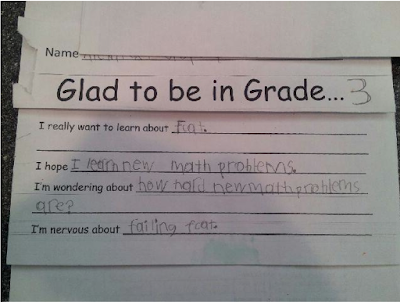 Name
Glad to be in Grade... 3
I really want to learn about Fcat.
I hope I learn new math problems.
I'm wondering about how hard new math problems
are?
I'm nervous about failing fcat.